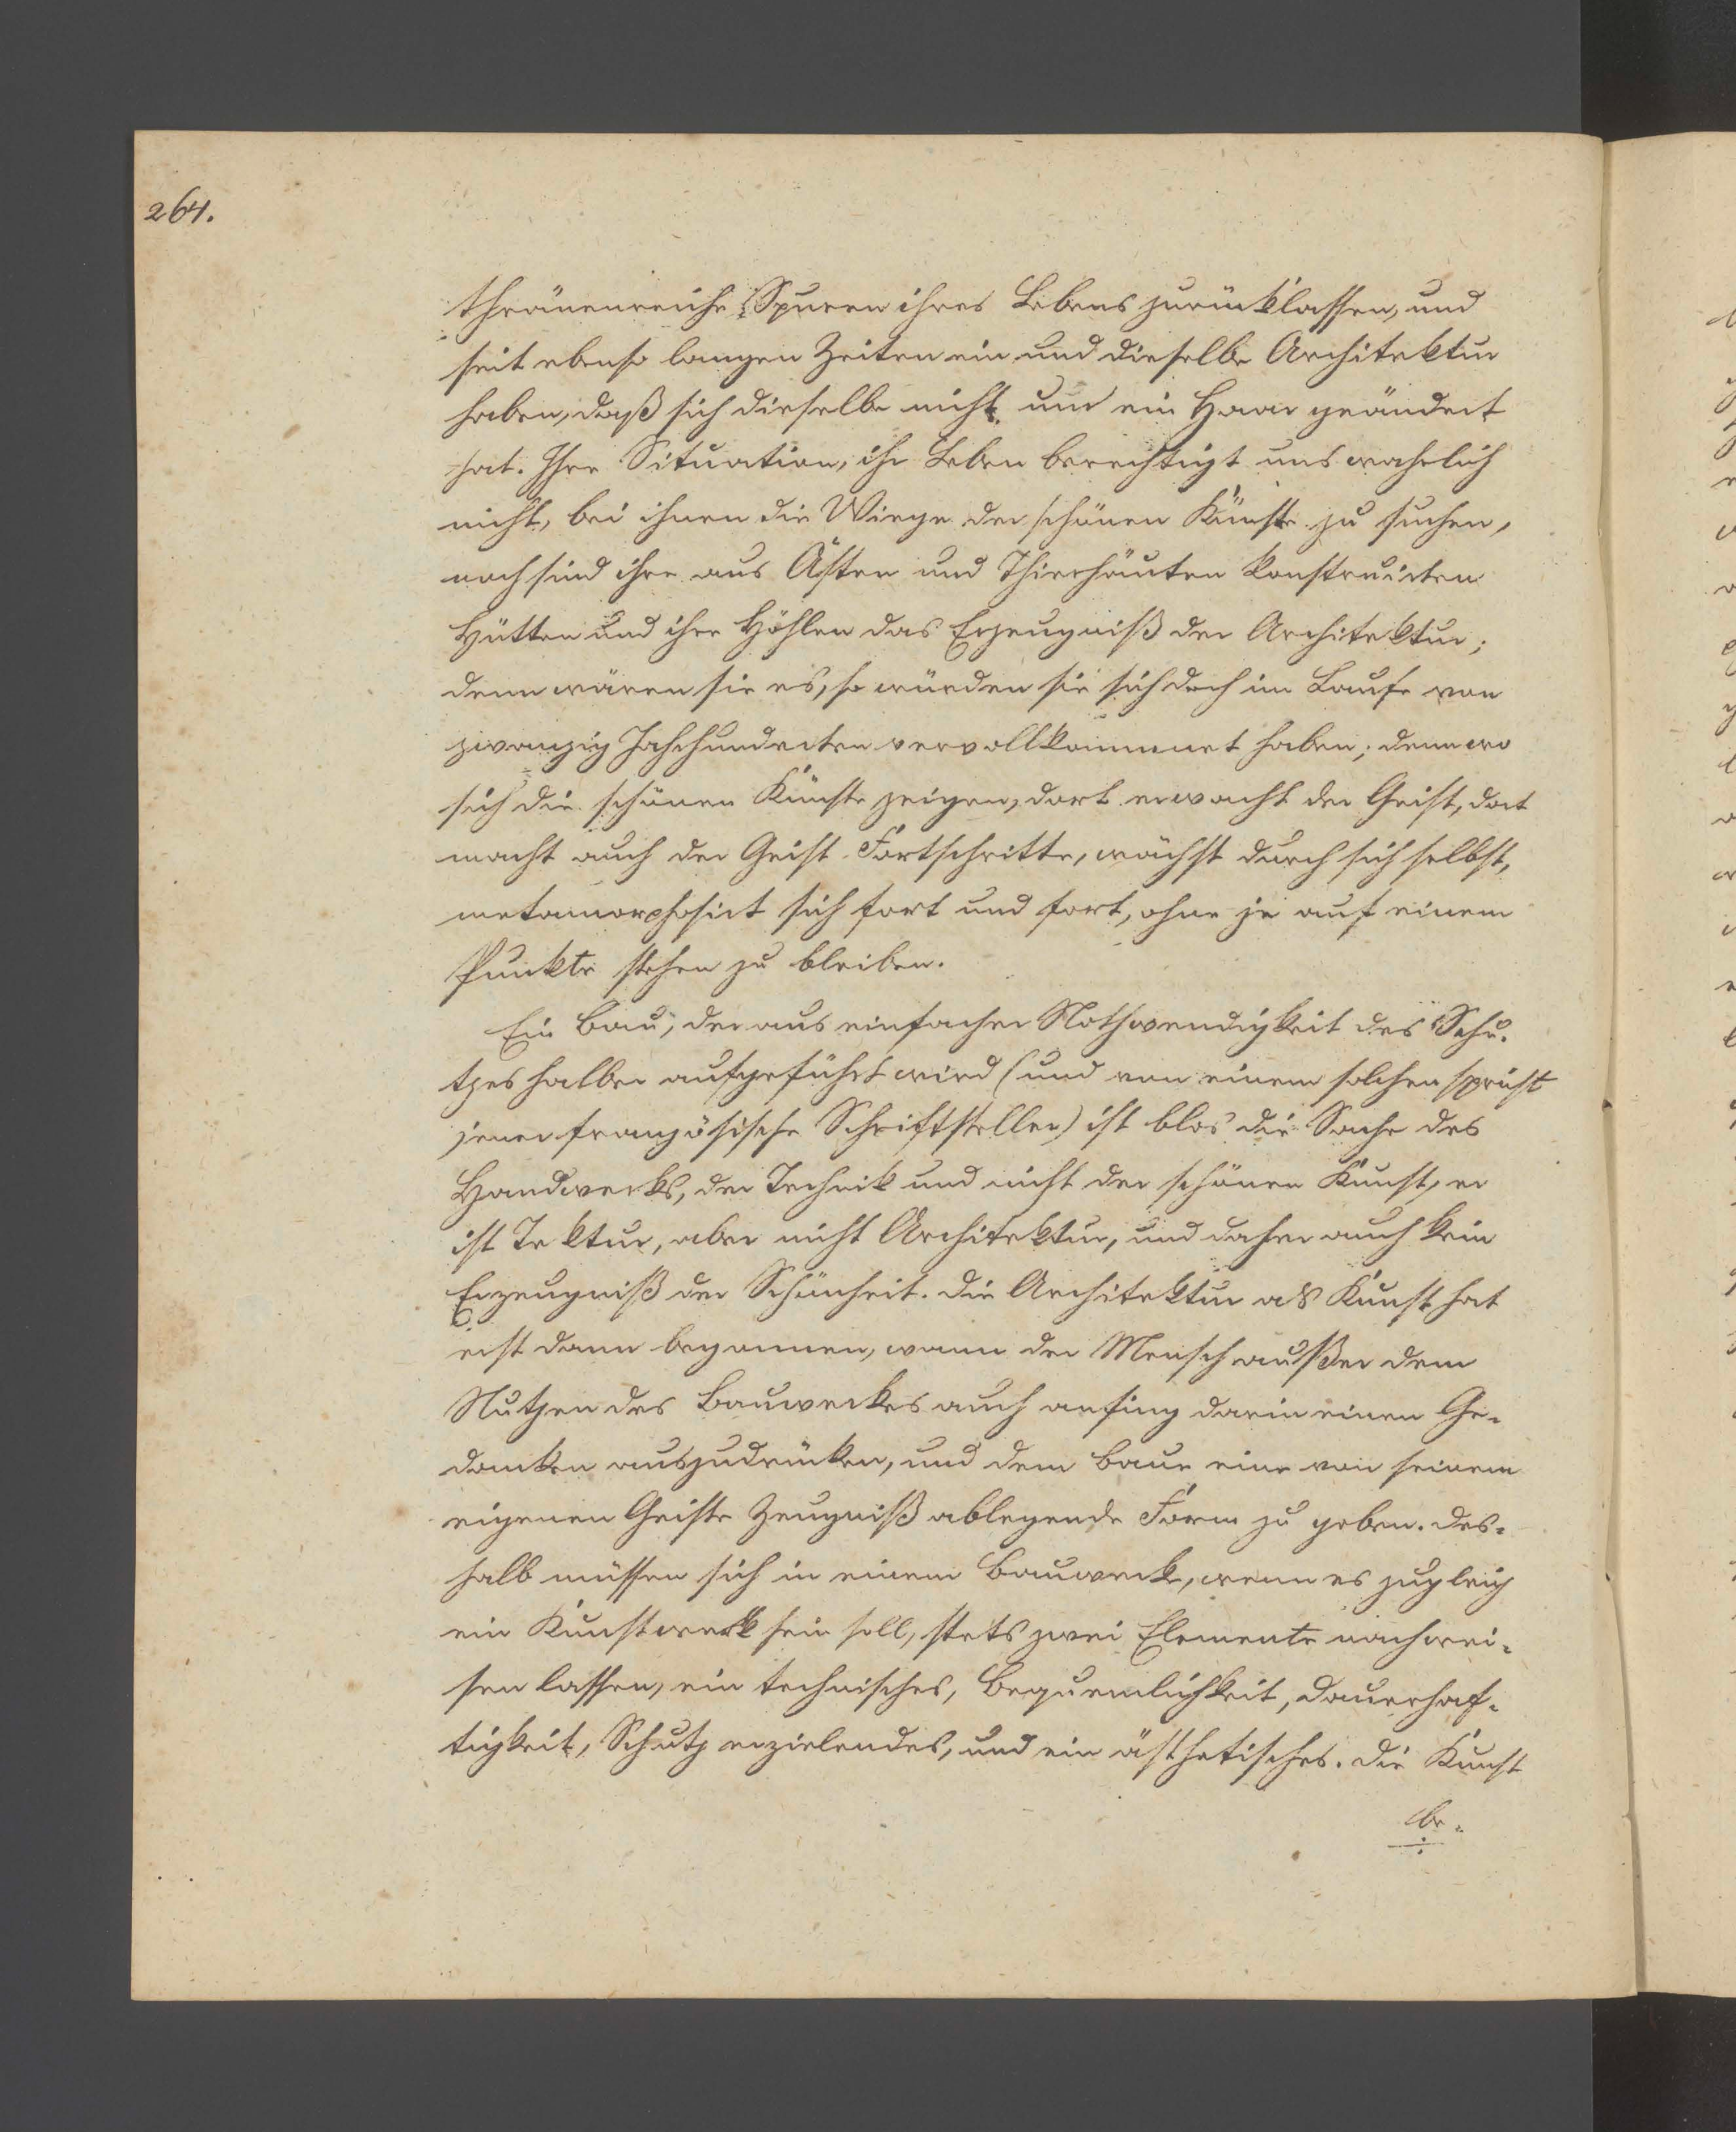 264.
thränenreiche Spuren ihres Lebens zurücklassen, und
seit ebenso langen Zeiten ein und dieselbe Architektur
haben, daß sich dieselbe nicht um ein Haar geändert
hat. Ihre Situation, ihr Leben berechtigt uns wahrlich
nicht, bei ihnen die Wiege der schönen Künste zu suchen,
noch sind ihre aus Ästen und Thierhäuten konstruirten
Hütten und ihre Höhlen das Erzeugniß der Architektur;
denn wären sie es, so würden sie sich doch im Laufe von
zwanzig Jahrhunderten vervollkommnet haben; denn wo
sich die schönen Künste zeigen, dort erwacht der Geist, dort
macht auch der Geist Fortschritte, wächst durch sich selbst,
metamorphosirt sich fort und fort, ohne je auf einem
Punkte stehen zu bleiben.
Ein Bau, der aus einfacher Nothwendigkeit des Schu-
tzes halber aufgeführt wird (und von einem solchen spricht
jener französische Schriftsteller) ist blos die Sache des
Handwerks, der Technik und nicht der schönen Kunst, er
ist Tektur, aber nicht Architektur, und daher auch kein
Erzeugniß der Schönheit. Die Architektur als Kunst hat
erst dann begonnen, wann der Mensch außer dem
Nutzen des Bauwerkes auch anfing darin einen Ge-
danken auszudrücken, und dem Baue eine von seinem
eigenen Geiste Zeugniß ablegende Form zu geben. Des-
halb müssen sich in einem Bauwerk, wenn es zugleich
ein Kunstwerk sein soll, stets zwei Elemente nachwei-
sen lassen, ein technisches, Bequemlichkeit, Dauerhaf-
tigkeit, Schutz erzielendes, und ein ästhetisches. Die Kunst
be-